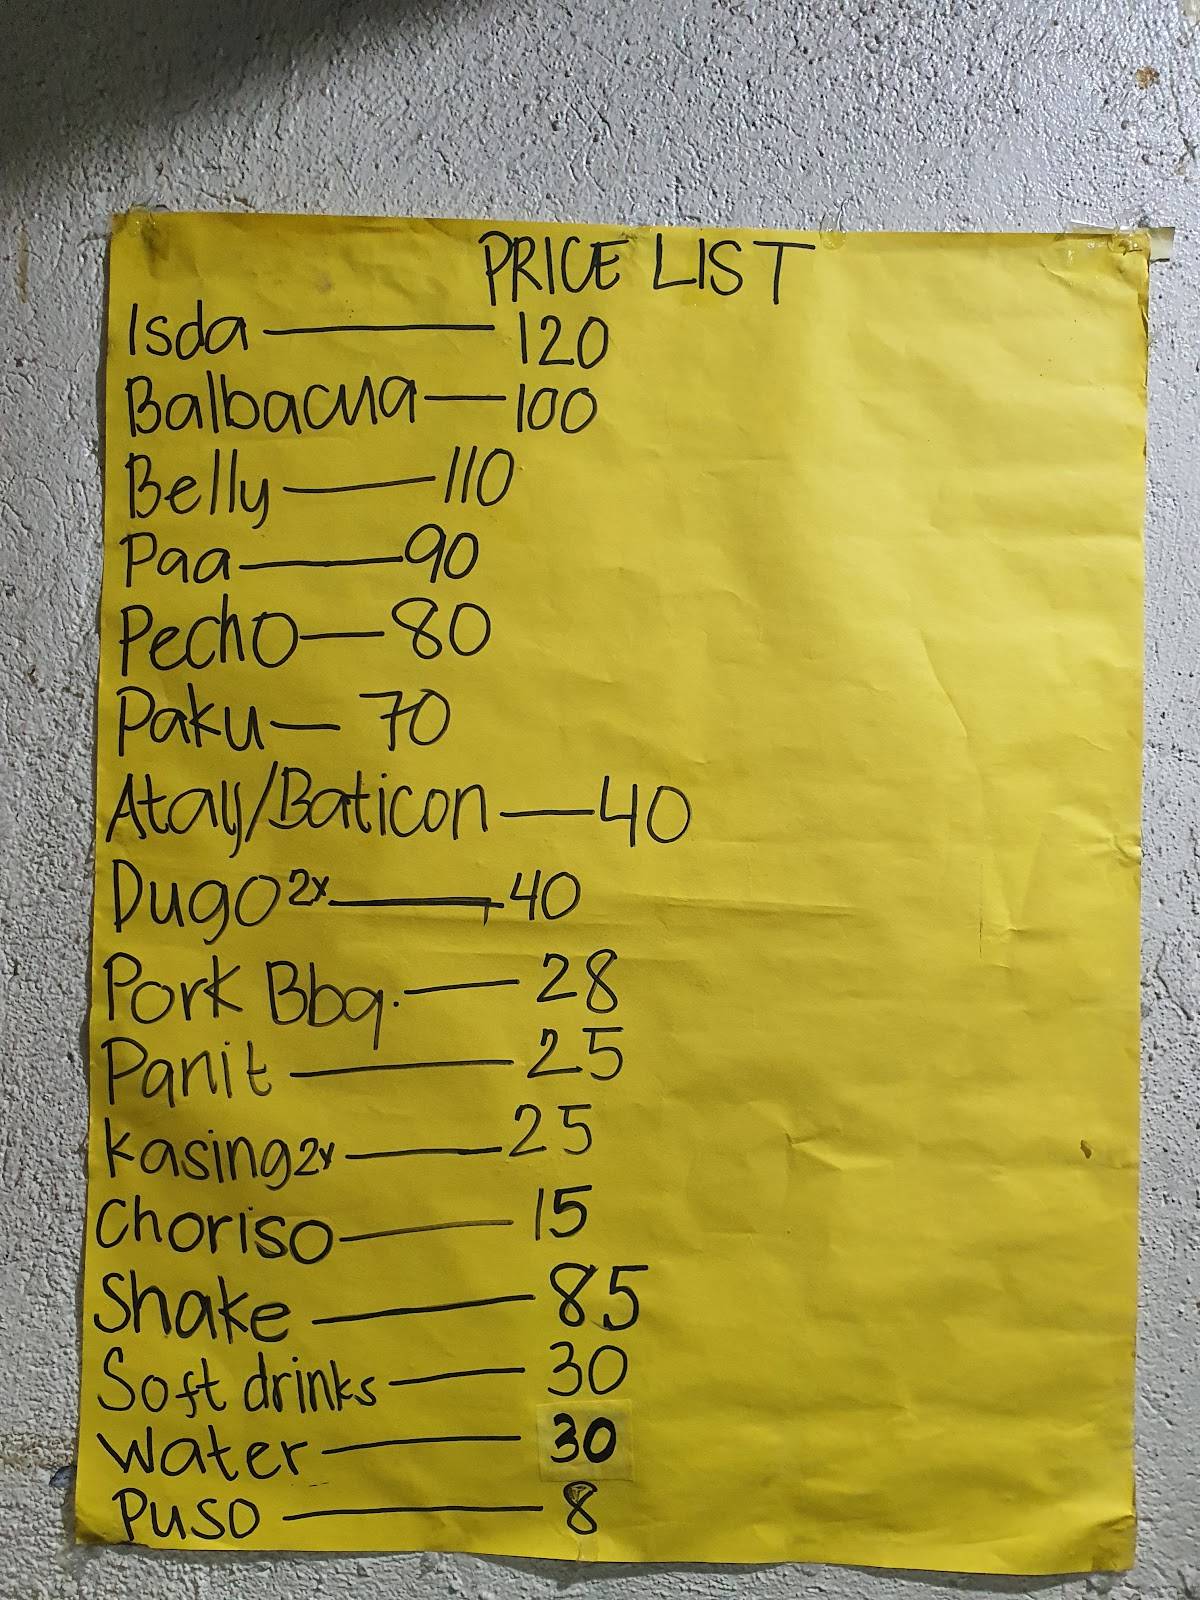 PRICE LIST
Isda — 120
Balbacua — 100
Belly — 110
Paa — 90
Pecho — 80
Paku — 70
Atay/Baticon — 40
Dugo 2x — 40
Pork Bbq. — 28
Panit — 25
Kasing 2x — 25
Choriso — 15
Shake — 85
Soft drinks — 30
Water — 30
Puso — 8